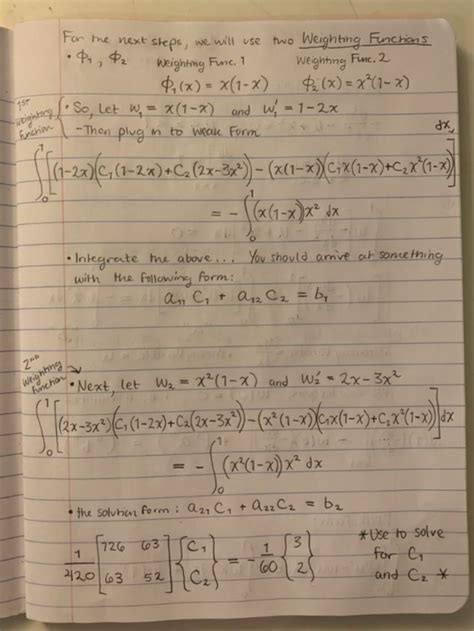 For the next steps, we will use two Weighting Functions
• ϕ₁, ϕ₂ Weighting Func. 1 Weighting Func. 2
ϕ₁(x) = x(1-x) ϕ₂(x) = x²(1-x)
1st Weighting Function
• So, let w₁ = x(1-x) and w₁' = 1-2x
-Then plug in to weak Form
∫₀¹[(1-2x)(C₁(1-2x)+C₂(2x-3x²))-(x(1-x))(C₁x(1-x)+C₂x²(1-x))] dx
= -∫₀¹(x(1-x))x² dx
• Integrate the above... You should arrive at something
with the following form:
a₁₁C₁ + a₁₂C₂ = b₁
2nd Weighting Function
• Next, let w₂ = x²(1-x) and w₂' = 2x-3x²
∫₀¹[(2x-3x²)(C₁(1-2x)+C₂(2x-3x²))-(x²(1-x))(C₁x(1-x)+C₂x²(1-x))]dx
= -∫₀¹(x²(1-x))x² dx
• the solution form: a₂₁C₁ + a₂₂C₂ = b₂
1/420 [726 63; 63 52] {C₁; C₂} = -1/60 {3; 2}
*Use to solve
for C₁
and C₂ *